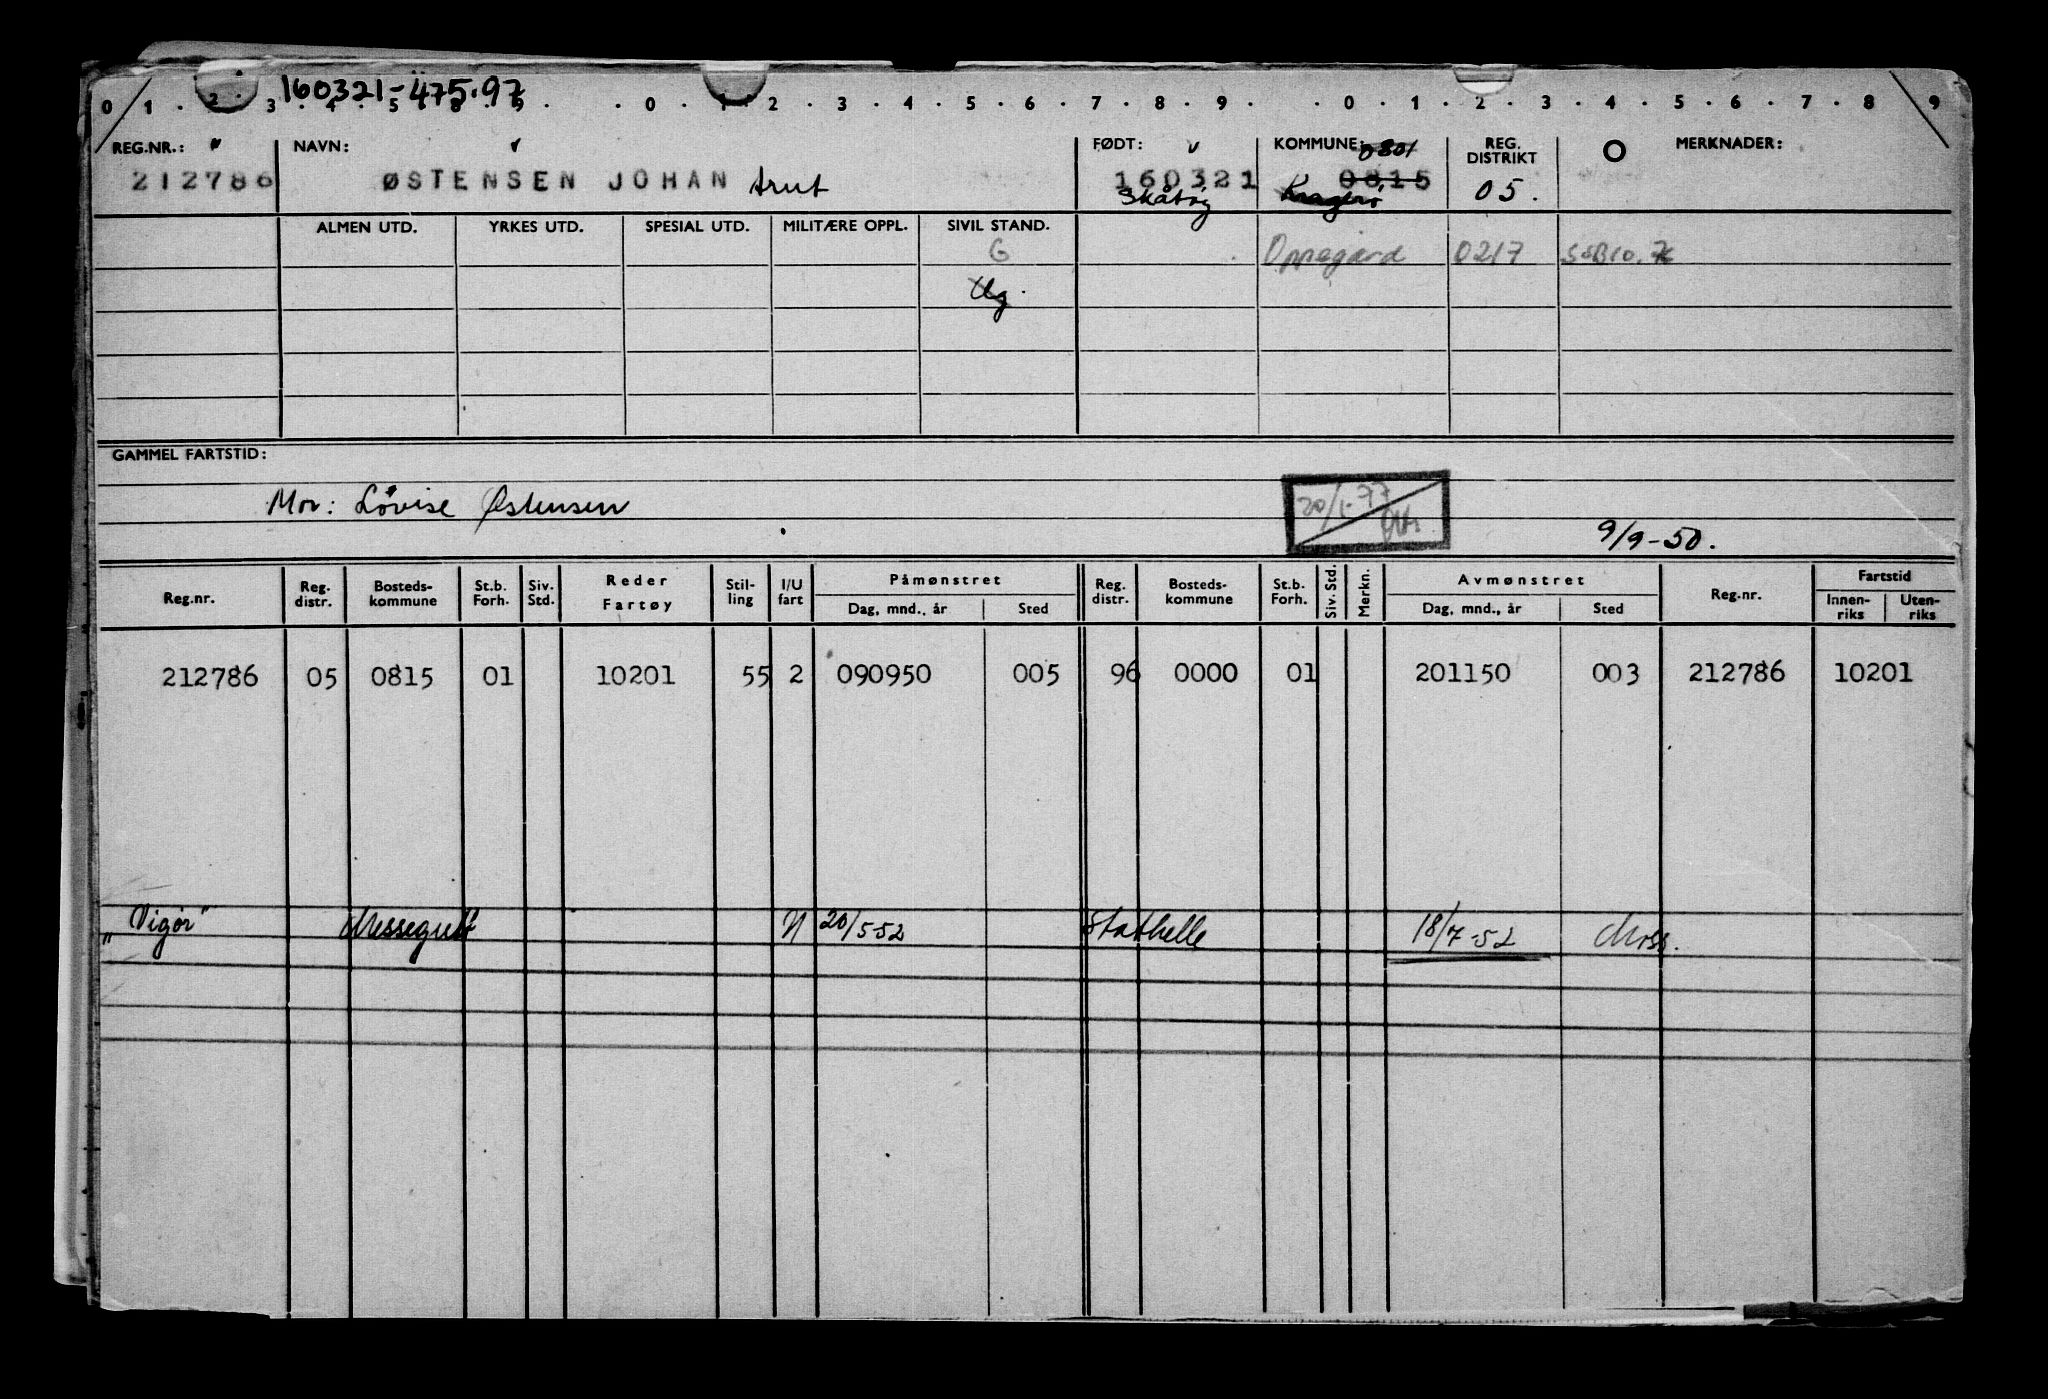 160321-475.97
0 1 . 2 . 3 . 4 . 5 . 8 . 9 . . 0 . 1 . 2 . 3 . 4 . 5 . 6 . 7 . 8 . 9 . . 0 . 1 . 2 . 3 . 4 . 5 . 6 . 7 . 8 . 9
REG.NR.: NAVN: FØDT: KOMMUNE: 0801 REG. DISTRIKT MERKNADER:
212786 ØSTENSEN JOHAN 160321 0815 05.
Skåtøy Kragerø
ALMEN UTD. YRKES UTD. SPESIAL UTD. MILITÆRE OPPL. SIVIL STAND.
G Oppegård 0217
Ug.
GAMMEL FARTSTID:
Mor: Lovise Østensen 20/1-77
9/9-50.
Reg.nr. Reg. distr. Bosteds-kommune St.b. Forh. Siv. Std. Reder Fartøy Stil-ling I/U fart Påmønstret Dag, mnd., år Sted Reg. distr. Bosteds-kommune St.b. Forh. Siv. Std. Merkn. Avmønstret Dag, mnd., år Sted Reg.nr. Fartstid Innen-riks Uten-riks
212786 05 0815 01 10201 55 2 090950 005 96 0000 01 201150 003 212786 10201
„Vigør" Messegutt N 20/5-52 Stathelle 18/7-52 Moss.